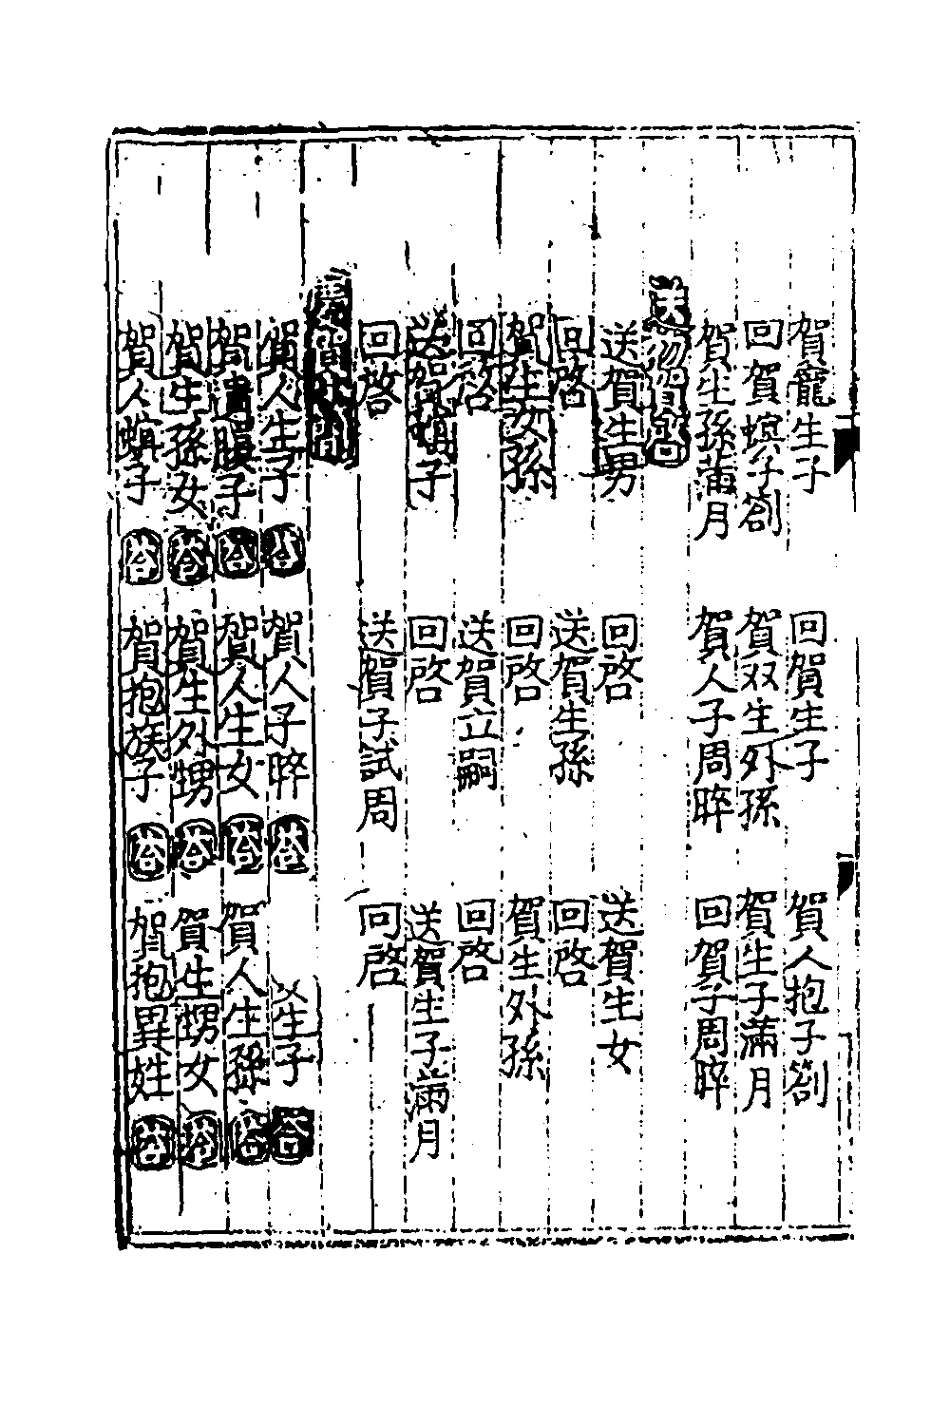 賀寵生子 回賀生子 賀人抱子劄
回賀螟子劄 賀双生外孫 賀生子滿月
賀生孫滿月 賀人子周晬 回賀子周晬
送物賀啓回
送賀生男 回啓 送賀生女
回啓 送賀生孫 回啓
賀生女孫 回啓 賀生外孫
回啓 送賀立嗣 回啓
送賀螟子 回啓 送賀生子滿月
回啓 送賀子試周 回啓
賀人生子 答 賀人子晬 答 生子 答
賀遺腹子 答 賀人生女 答 賀人生孫 答
賀生孫女 答 賀生外甥 答 賀生甥女 答
賀人螟子 答 賀抱族子 答 賀抱異姓 答